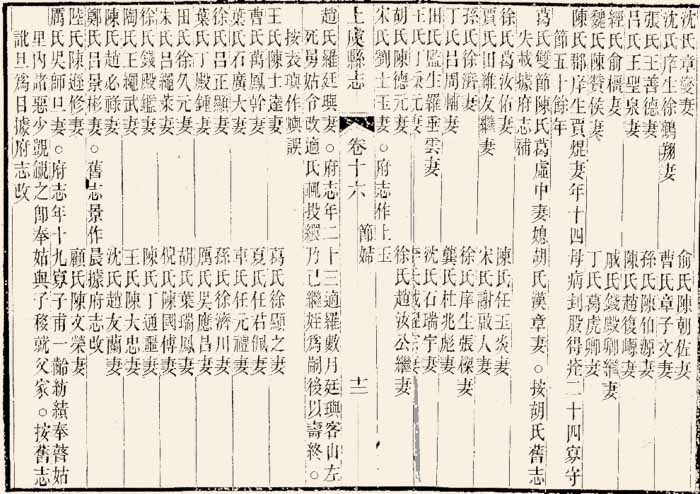 沈氏章燮妻　俞氏陳朝佐妻
沈氏庠生徐鶴翔妻　曹氏章子文妻
張氏王善德妻　孫氏陳伯源妻
呂氏王聖泉妻　陳氏趙復嶹妻
經氏俞概妻　戚氏錢殿卿繼妻
魏氏陳贊侯妻　丁氏葛虎卿妻
陳氏郡庠生賈焜妻年十四母病刲股得痊二十四寡守
節五十餘年
葛氏雙節陳氏葛虛中妻媳胡氏漢章妻○按胡氏舊志
失載據府志補
徐氏葛汝佑妻　陳氏任玉炎妻
賈氏田維友繼妻　宋氏謝敬人妻
孫氏徐濟妻　徐氏庠生張樑妻
丁氏呂周輔妻　龔氏杜兆彪妻
田氏監生羅垂雲妻　沈氏石瑞宇妻
王氏丁 元妻　李氏 妻
胡氏陳德元妻　徐氏趙汝公繼妻
宋氏劉士玉妻○府志作上玉
上虞縣志　卷十六　節婦　十二
趙氏羅廷璵妻○府志年二十三適羅數月廷璵客山左
死舅姑令改適氏輒投繯乃已繼姪爲嗣後以壽終○
按表項作璵誤
王氏陳士達妻　葛氏徐顯之妻
曹氏萬鳳幹妻　夏氏任右佩妻
葉氏石廣大妻　車氏任元禮妻
徐氏呂正顯妻　孫氏徐濟川妻
葉氏丁殿鍾妻　厲氏吳應昌妻
田氏徐久元妻　胡氏葉瑞鳳妻
宋氏呂繩葉妻　倪氏陳國傳妻
徐氏錢殿鼇妻　陳氏丁通璽妻
陶氏王繩武妻　王氏陳大忠妻
陳氏趙必祿妻　沈氏趙友蘭妻
鄭氏呂景彬妻○舊志景作晨據府志改
陸氏陳遜修妻　顧氏陳文榮妻
厲氏吳師旦妻○府志年十九寡子甫一齡紡績奉瞽姑
里內諸惡少覬覦之卽奉姑與子移就父家○按舊志
訛旦爲日據府志改